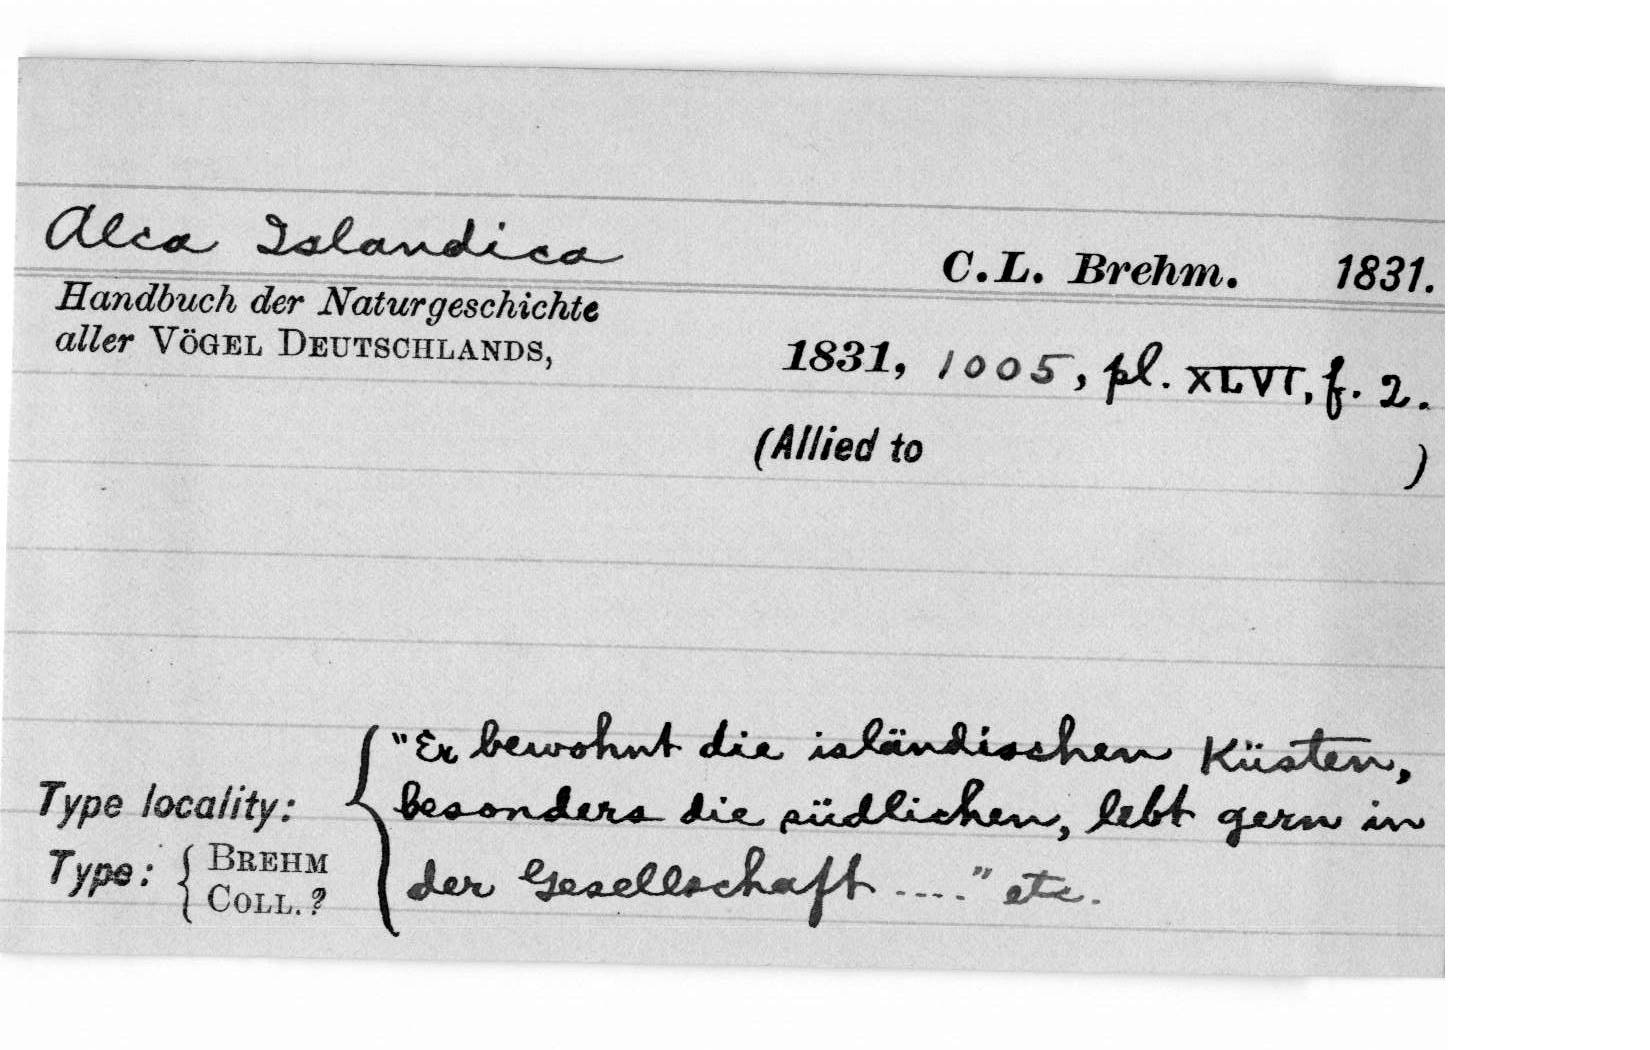 Alca Islandica C.L. Brehm. 1831.
Handbuch der Naturgeschichte
aller VÖGEL DEUTSCHLANDS, 1831, 1005, pl. XLVI, f. 2.
(Allied to )
"Er bewohnt die isländischen Küsten,
Type locality: besonders die südlichen, lebt gern in
Type: { BREHM COLL. ? der Gesellschaft ...." etc.